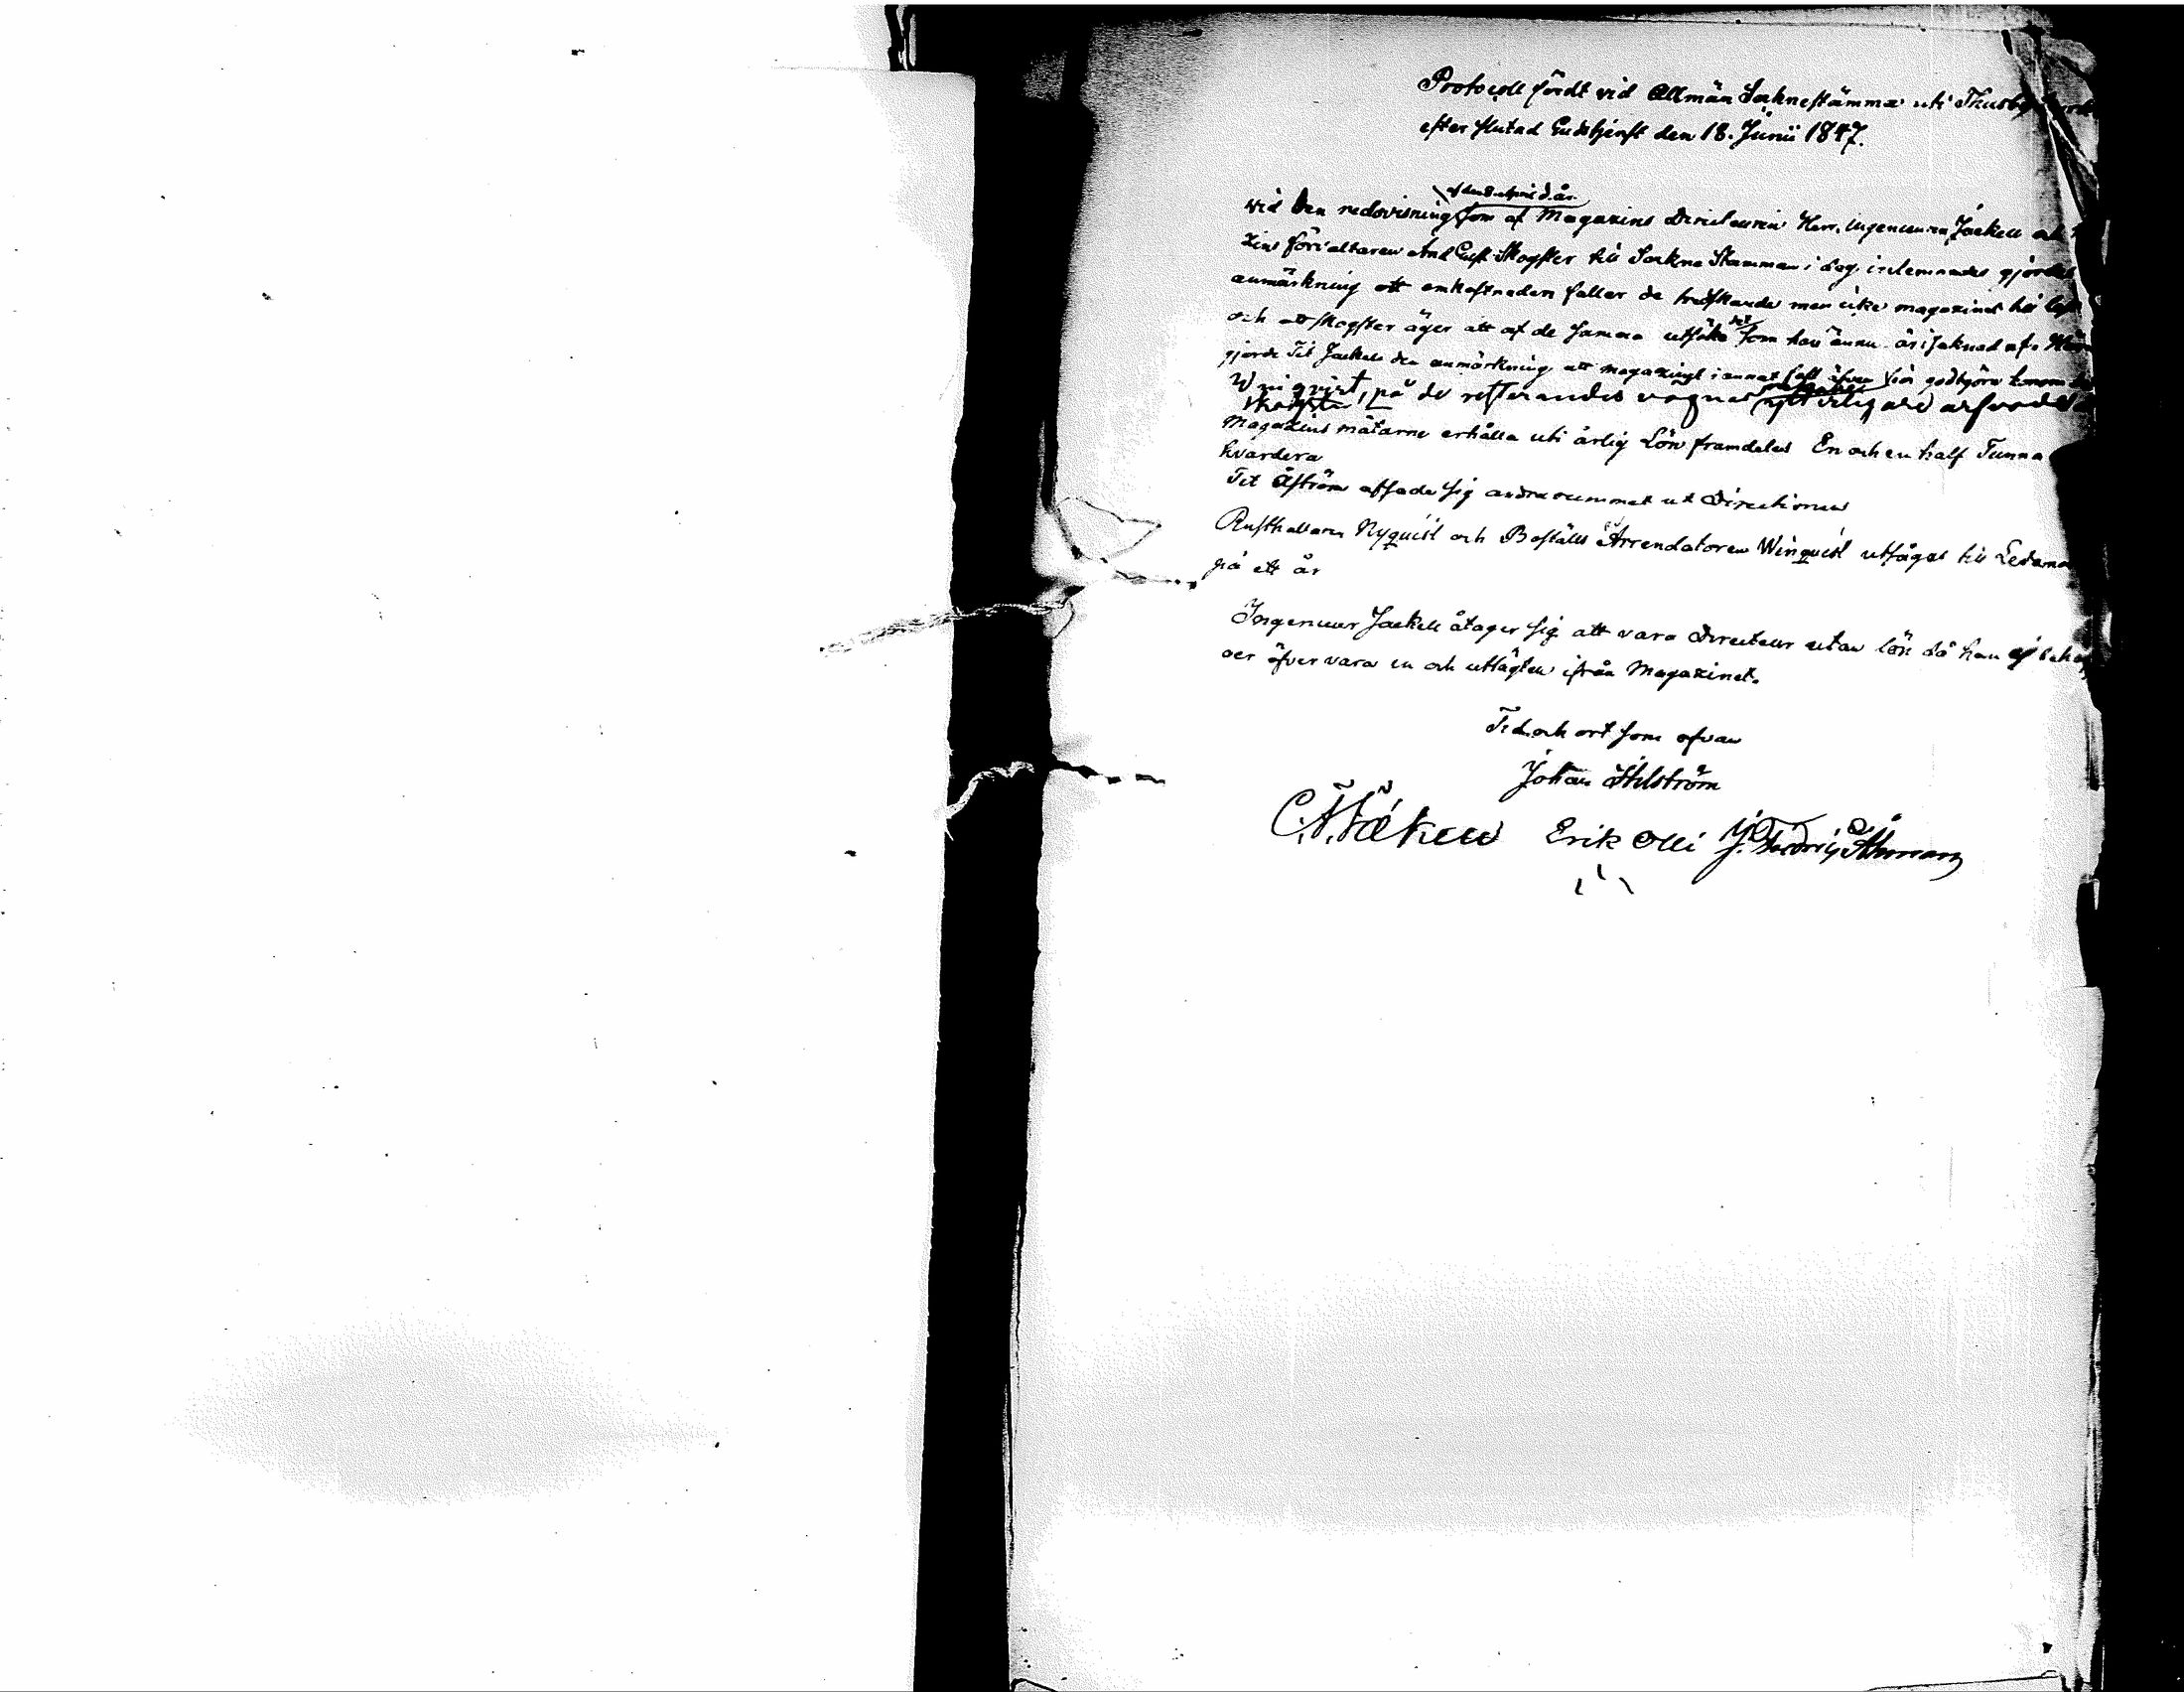 Protocoll fördt vid Allmän Socknestämma uti Thusby
efter slutad Gudstjenst den 18. Junii 1847.
af den 8 April d. år.
vid den redovisning som af Magazins Directeuren Herr Ingenieuren Jackell och
zins förvaltaren And Gust Skogster till Sockne Stämman i dag inlemnades gjordes
anmärkning att omkostnaden faller de treskande men icke magazinet till last
och att Skogster äger att af de samma utsöka det som han ännu är i saknad af.
gjorde Tit Jackell den anmärkning att magazinet i annat fall äfven för godtgöra honom
Winqvist, på de resterandes vägnar arfvode
Skogster
Magazins mätarne erhålla uti årlig Lön framdeles En och en half Tunna
hvardera
Tit Åström afsade sig andra rummet ut Directionen
Rusthållaren Nyquist och Boställs Arrendatoren Winquist utsågas till Ledamöter
på ett år
Ingenieur Jackell åtager sig att vara Directeur utan lön då han ej
öfver vara in och utvägten ifrån Magazinet.
Tid och ort som ofvan
Johan Ahlström
C. F. Jäkell Erik Olli J. Fredrig Åhman